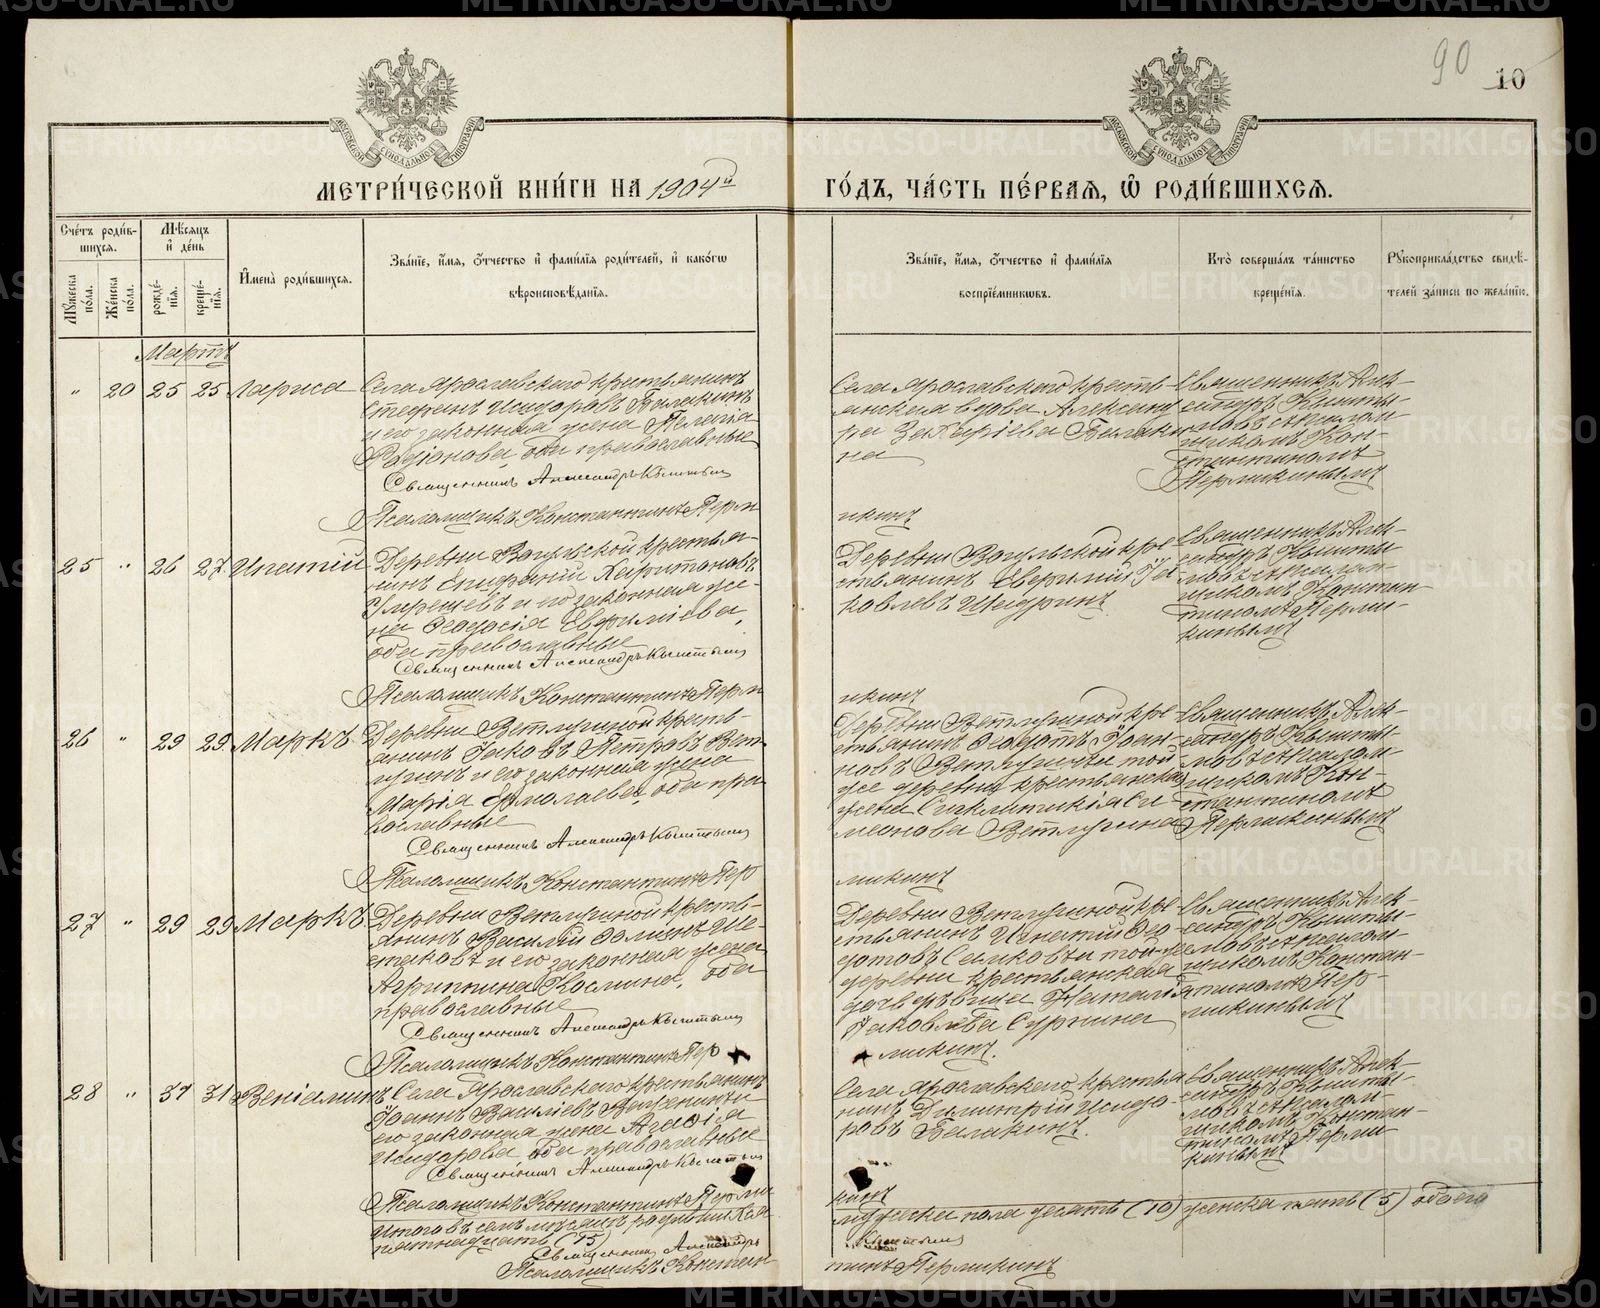 90
10
МОСКОВСКОЙ СѴНОДАЛЬНОЙ ТИПОГРАФІИ
МОСКОВСКОЙ СѴНОДАЛЬНОЙ ТИПОГРАФІИ
МЕТРИ́ЧЕСКОЙ КНИ́ГИ НА 1904й ГО́ДЪ, ЧА́СТЬ ПЕ́РВАЯ, Ѿ РОДИ́ВШИХСЯ.
Сче́тъ роди́в-
шихся.
Мꙋ́жеска по́ла.
Же́нска по́ла.
Мѣ́сяцъ и́ де́нь
рожде́-
нїя.
креще́-
нїя.
И҆мена̀ роди́вшихся.
Зва́нїе, и҆́мя, ѻ҆́тчество и҆ фами́лїя роди́телей, и҆ како́гѡ
вѣроисповѣ́данїя.
Зва́нїе, и҆́мя, ѻ҆́тчество и҆ фами́лїя
воспрїе́мникѡвъ.
Кто̀ соверша́лъ та́инство
креще́нїя.
Рꙋкоприкла́дство свидѣ́-
телей за́писи по жела́нїю.
Мартъ
" 20 25 25 Лариса
Села Ярославскаго крестьянинъ
Стефанъ Исидоровъ Балакинъ
и его законная жена Пелагія
Родіонова, оба православные
Священникъ Александръ Кыштымовъ
Псаломщикъ Константинъ Перм
Села Ярославскаго кресть-
янская вдова Александ
ра Захаріева Балаки
на
икинъ
Священникъ Алек-
сандръ Кышты-
мовъ съ псалом-
щикомъ Кон-
стантиномъ
Пермикинымъ
25 " 26 27 Ипатій
Деревни Вогульской крестья-
нинъ Епифаній Харитоновъ
и его законная же-
на Ѳеодосія Евфиміева,
оба православные
Священникъ Александръ Кыштымовъ
Псаломщикъ Константинъ Перм
Деревни Вогульской кре-
стьянинъ Евфимій Іа-
ковлевъ Шидринъ
икинъ
Священникъ Алек-
сандръ Кышты
мовъ съ псалом-
щикомъ Констан
тиномъ Перми-
кинымъ
26 " 29 29 Маркъ
Деревни Ветлугиной кресть-
янинъ Іаковъ Петровъ Вет
лугинъ и его законная жена
Марія Ермолаева, оба пра
вославные
Священникъ Александръ Кыштымовъ
Псаломщикъ Константинъ Пер
Деревни Ветлугиной кре-
стьянинъ Ѳеодотъ Іоан-
новъ Ветлугинъ и той
же деревни крестьянская
жена Синклитикія Си
меонова Ветлугина
микинъ
Священникъ Алек-
сандръ Кышты-
мовъ съ псалом-
щикомъ Кон-
стантиномъ
Пермикинымъ
27 " 29 29 Маркъ
Деревни Ветлугиной кресть-
янинъ Василій Ѳоминъ Ше-
стаковъ и его законная жена
Агриппина Космина, оба
православные
Священникъ Александръ Кыштымовъ
Псаломщикъ Константинъ Пер
Деревни Ветлугиной кре
стьянинъ Игнатій Ѳео-
дотовъ Семковъ и той-же
деревни крестьянская
дочь дѣвица Наталія
Іаковлева Сургина
микинъ.
Священникъ Алек-
сандръ Кышты-
мовъ съ псалом-
щикомъ Констан-
тиномъ Пер-
микинымъ
28 " 31 31 Веніаминъ
Села Ярославскаго крестьянинъ
Іоаннъ Василіевъ Важенинъ и
его законная жена Агаѳія
Исидорова, оба православные
Священникъ Александръ Кыштымовъ
Псаломщикъ Константинъ Перми
Села Ярославскаго крестья
нинъ Димитрій Исидо-
ровъ Балакинъ.
кинъ
Священникъ Алек-
сандръ Кышты-
мовъ съ псалом-
щикомъ Констан-
тиномъ Перми
кинымъ
Итого въ семъ мѣсяцѣ родившихся мужеска пола десять (10) женска пять (5) обоего
пятнадцать (15)
Священникъ Александръ Кыштымовъ
Псаломщикъ Константинъ Пермикинъ
METRIKI.GASO-URAL.RU